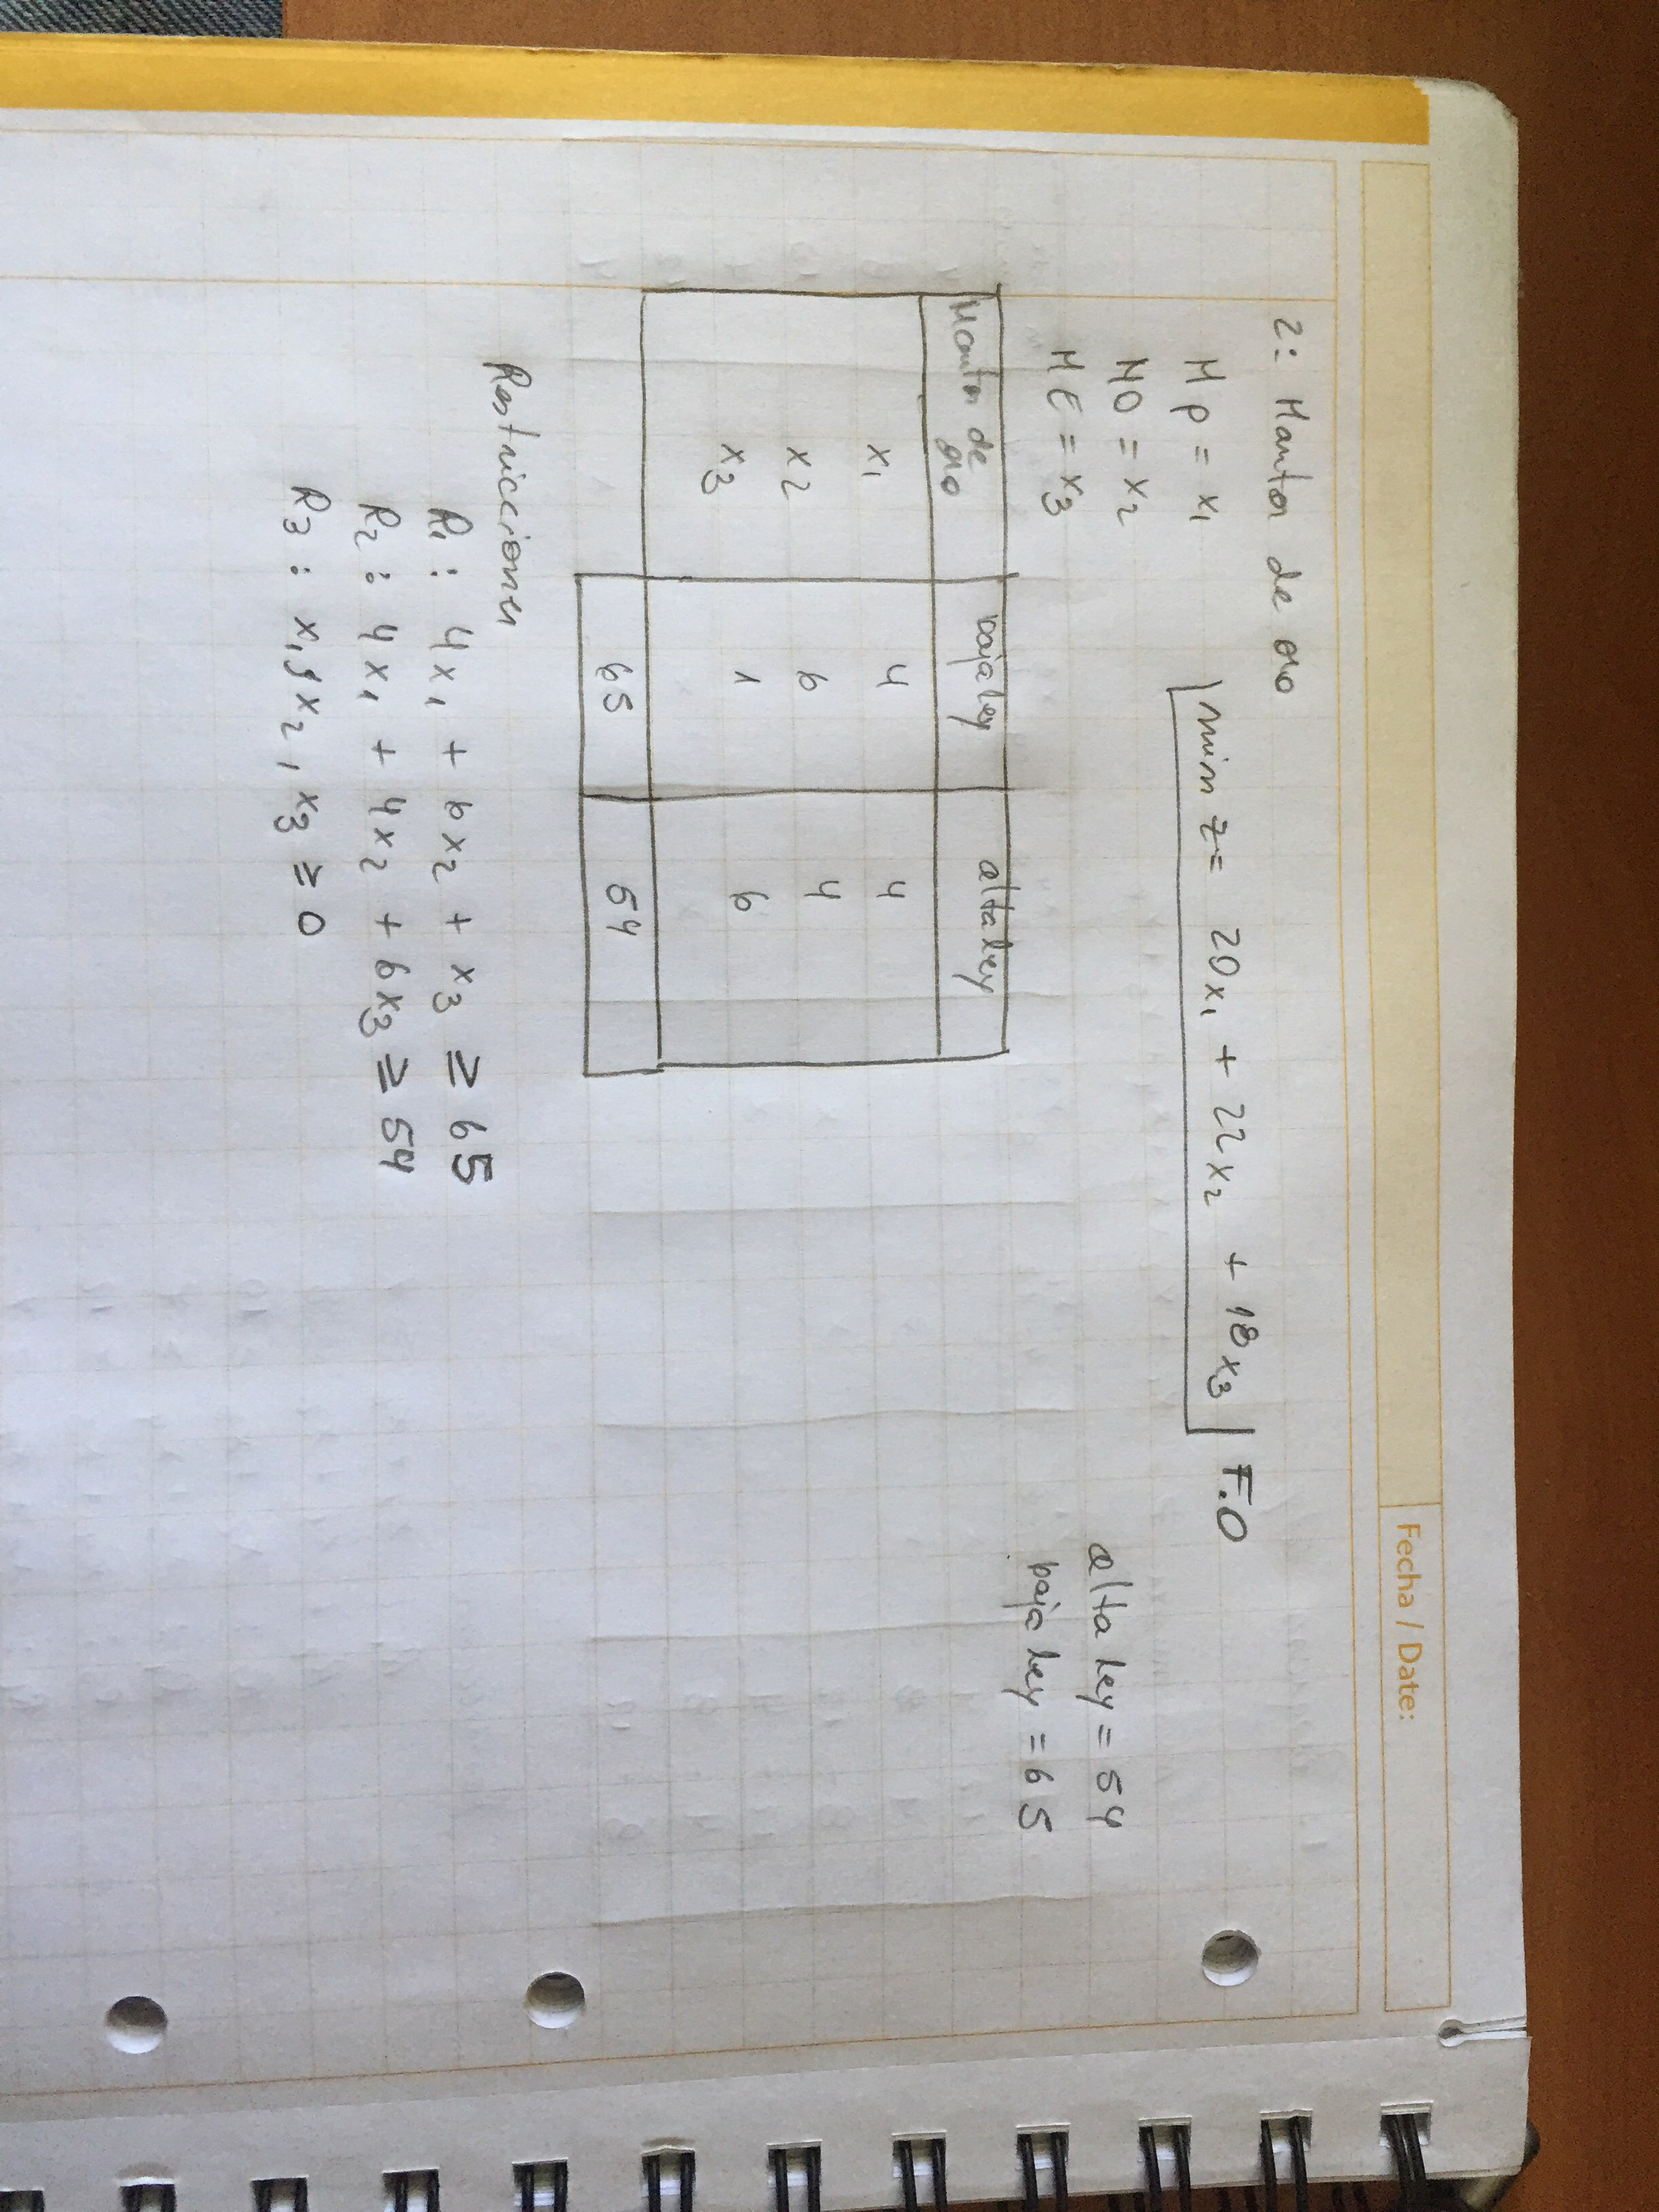 Fecha / Date:
2: Mantos de oro
min z = 20x₁ + 22x₂ + 18x₃ F.O
MP = x₁
MO = x₂
ME = x₃
alta ley = 54
baja ley = 65
Mantos de oro baja ley alta ley
x₁ 4 4
x₂ 6 4
x₃ 1 6
65 54
Restricciones
R₁: 4x₁ + 6x₂ + x₃ ≥ 65
R₂: 4x₁ + 4x₂ + 6x₃ ≥ 54
R₃: x₁, x₂, x₃ ≥ 0